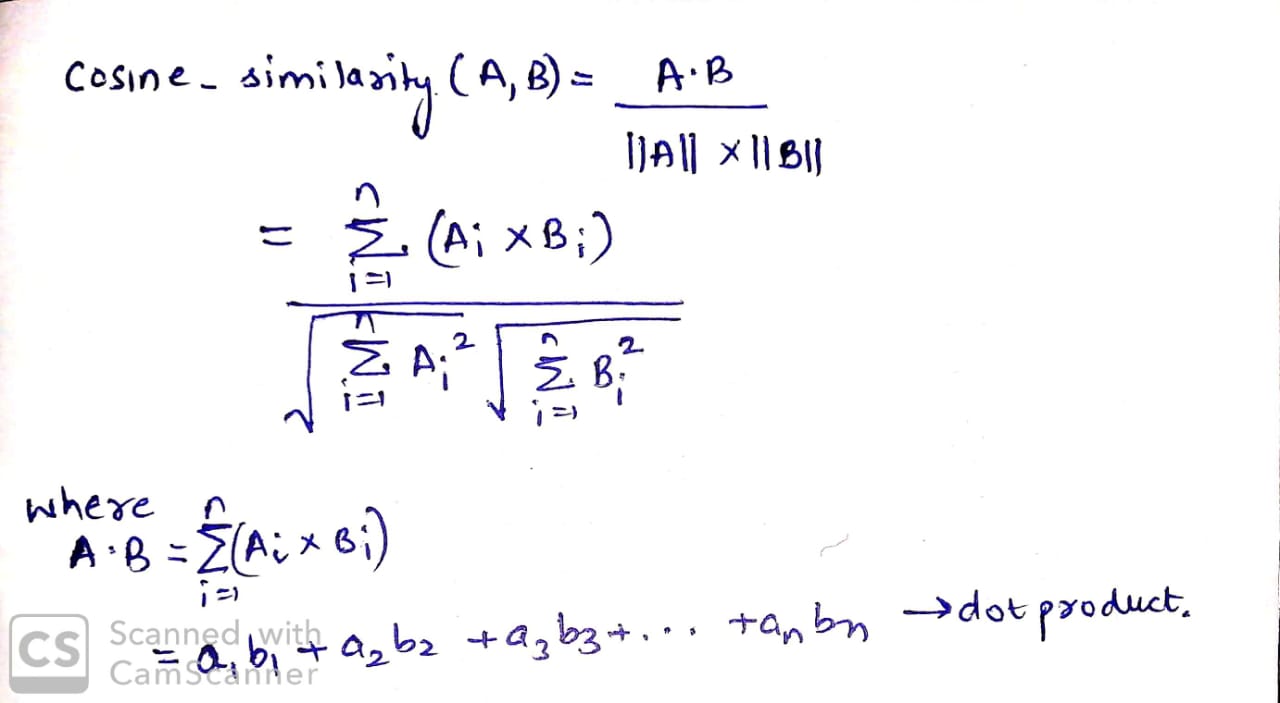 Cosine - similarity (A, B) = A·B
||A|| × ||B||
= n
Σ (Ai × Bi)
i=1
√ n Σ i=1 Ai² √ n Σ i=1 Bi²
where
A·B = n Σ i=1 (Ai × Bi)
= a1 b1 + a2 b2 + a3 b3 + ... + an bn → dot product.
CS Scanned with
CamScanner